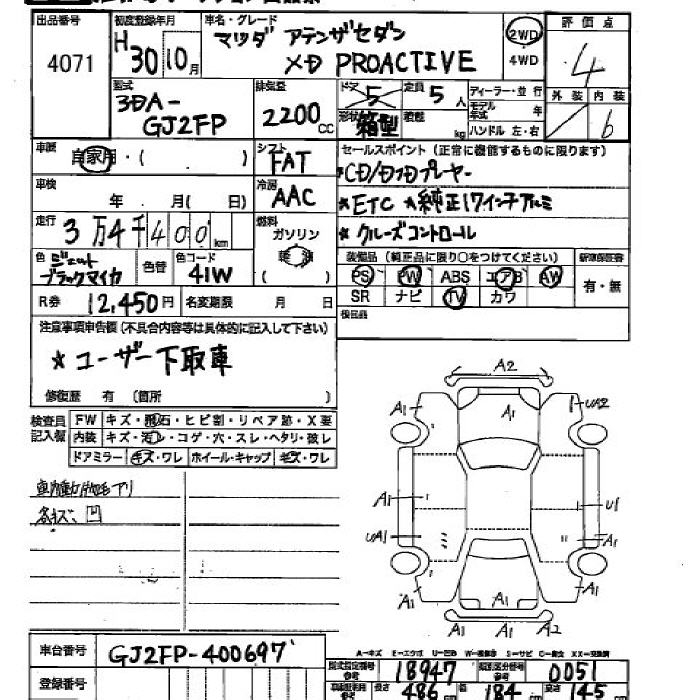 出品番号 初度登録年月 車名・グレード 評価点
4071 H30 10月 マツダ アテンザセダン 2WD 4
XD PROACTIVE 4WD
型式 排気量 ドア 5 定員 5人 ディーラー・並行 外装 内装
3DA- 2200cc 形状 箱型 積載 kg モデル年式 年 6
GJ2FP ハンドル 左・右
車歴 自家用・( ) シフト FAT セールスポイント(正常に機能するものに限ります)
車検 年 月(日) 冷房 AAC
CD/DVDプレーヤー
★ETC ★純正17インチアルミ
走行 3万4千400km 燃料 ガソリン
★クルーズコントロール
色 ジェットブラックマイカ 色替 色コード 41W ( )
装備品(純正品に限り○をつけてください) 新車保証書
PS PW ABS エアB AW 有・無
R券 12,450円 名変期限 月 日 SR ナビ TV カワ
注意事項申告欄(不具合内容等は具体的に記入して下さい)
★ユーザー下取車
修復歴 有 (箇所 )
検査員記入欄 FW キズ・飛石・ヒビ割・リペア跡・X要
内装 キズ・汚レ・コゲ・穴・スレ・ヘタリ・破レ
ドアミラー キズ・ワレ ホイール・キャップ キズ・ワレ
各キズ、凹
A2
A1 A1 UA2
A1 U1
UA1 A1
A1 A1 A1
A1 A1 A2
車台番号 GJ2FP-400697
A-キズ E-エクボ U-凹 W-補修跡 S-サビ C-腐食 XX-交換済
型式指定番号 参考 18947 類別区分番号 参考 0051
登録番号 長さ 486cm 幅 184cm 高さ 145cm